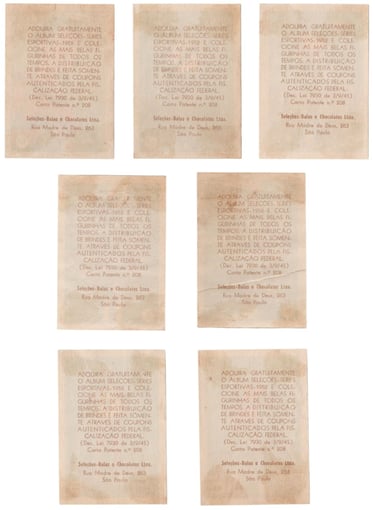 ADQUIRA GRATUITAMENTE
O ÁLBUM SELEÇÕES-SÉRIES
ESPORTIVAS-1958 E COLE-
CIONE AS MAIS BELAS FI-
GURINHAS DE TODOS OS
TEMPOS. A DISTRIBUIÇÃO
DE BRINDES É FEITA SOMEN-
TE ATRAVÉS DE COUPONS
AUTENTICADOS PELA FIS-
CALIZAÇÃO FEDERAL.
(Dec. Lei 7930 de 3/9/45)
Carta Patente n.º 208
Seleções-Balas e Chocolates Ltda.
Rua Madre de Deus, 863
São Paulo
ADQUIRA GRATUITAMENTE
O ÁLBUM SELEÇÕES-SÉRIES
ESPORTIVAS-1958 E COLE-
CIONE AS MAIS BELAS FI-
GURINHAS DE TODOS OS
TEMPOS. A DISTRIBUIÇÃO
DE BRINDES É FEITA SOMEN-
TE ATRAVÉS DE COUPONS
AUTENTICADOS PELA FIS-
CALIZAÇÃO FEDERAL.
(Dec. Lei 7930 de 3/9/45)
Carta Patente n.º 208
Seleções-Balas e Chocolates Ltda.
Rua Madre de Deus, 863
São Paulo
ADQUIRA GRATUITAMENTE
O ÁLBUM SELEÇÕES-SÉRIES
ESPORTIVAS-1958 E COLE-
CIONE AS MAIS BELAS FI-
GURINHAS DE TODOS OS
TEMPOS. A DISTRIBUIÇÃO
DE BRINDES É FEITA SOMEN-
TE ATRAVÉS DE COUPONS
AUTENTICADOS PELA FIS-
CALIZAÇÃO FEDERAL.
(Dec. Lei 7930 de 3/9/45)
Carta Patente n.º 208
Seleções-Balas e Chocolates Ltda.
Rua Madre de Deus, 863
São Paulo
ADQUIRA
O ÁLBUM SELEÇÕES-SÉRIES
ESPORTIVAS-1958 E COLE-
CIONE AS MAIS BELAS FI-
GURINHAS DE TODOS OS
TEMPOS. A DISTRIBUIÇÃO
DE BRINDES É FEITA SOMEN-
TE ATRAVÉS DE COUPONS
AUTENTICADOS PELA FIS-
CALIZAÇÃO FEDERAL.
(Dec. Lei 7930 de 3/9/45)
Carta Patente n.º 208
Seleções-Balas e Chocolates Ltda.
Rua Madre de Deus, 863
São Paulo
ADQUIRA GRATUITAMENTE
O ÁLBUM SELEÇÕES-SÉRIES
ESPORTIVAS-1958 E COLE-
CIONE AS MAIS BELAS FI-
GURINHAS DE TODOS OS
TEMPOS. A DISTRIBUIÇÃO
DE BRINDES É FEITA SOMEN-
TE ATRAVÉS DE COUPONS
AUTENTICADOS PELA FIS-
CALIZAÇÃO FEDERAL.
(Dec. Lei 7930 de 3/9/45)
Carta Patente n.º 208
Seleções-Balas e Chocolates Ltda.
Rua Madre de Deus, 863
São Paulo
ADQUIRA
O ÁLBUM SELEÇÕES-SÉRIES
ESPORTIVAS-1958 E COLE-
CIONE AS MAIS BELAS FI-
GURINHAS DE TODOS OS
TEMPOS. A DISTRIBUIÇÃO
DE BRINDES É FEITA SOMEN-
TE ATRAVÉS DE COUPONS
AUTENTICADOS PELA FIS-
CALIZAÇÃO FEDERAL.
(Dec. Lei 7930 de 3/9/45)
Carta Patente n.º 208
Seleções-Balas e Chocolates Ltda.
Rua Madre de Deus, 863
São Paulo
ADQUIRA GRATUITAMENTE
O ÁLBUM SELEÇÕES-SÉRIES
ESPORTIVAS-1958 E COLE-
CIONE AS MAIS BELAS FI-
GURINHAS DE TODOS OS
TEMPOS. A DISTRIBUIÇÃO
DE BRINDES É FEITA SOMEN-
TE ATRAVÉS DE COUPONS
AUTENTICADOS PELA FIS-
CALIZAÇÃO FEDERAL.
(Dec. Lei 7930 de 3/9/45)
Carta Patente n.º 208
Seleções-Balas e Chocolates Ltda.
Rua Madre de Deus,
São Paulo